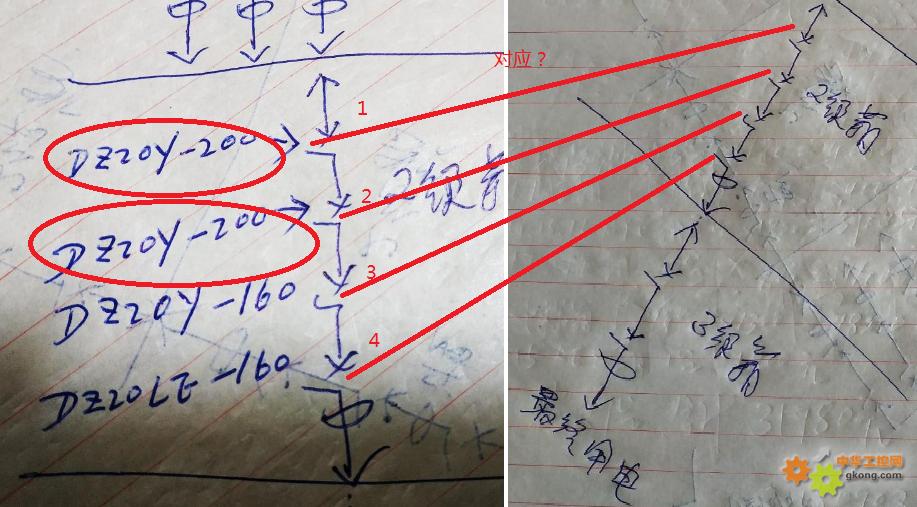 对应？
1
DZ20Y-200
2
2级箱
DZ20Y-200
3
DZ20Y-160
4
DZ20LE-160
2级箱
3级箱
最终用电
中华工控网
gkong.com